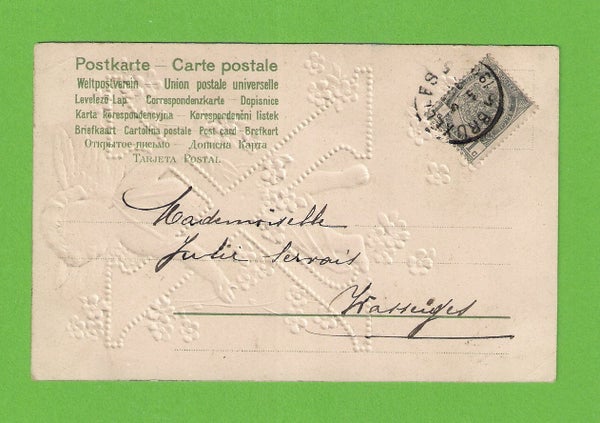 Postkarte – Carte postale
Weltpostverein – Union postale universelle
Levelező-Lap – Correspondenzkarte – Dopisnice
Karta korespondencyjna – Korespondenční listek
Briefkaart – Cartolina postale – Post card – Brefkort
Открытое письмо – Дописна Карта
Tarjeta Postal
BRUXELLES
Mademoiselle
Julie Servais
Wasseiges